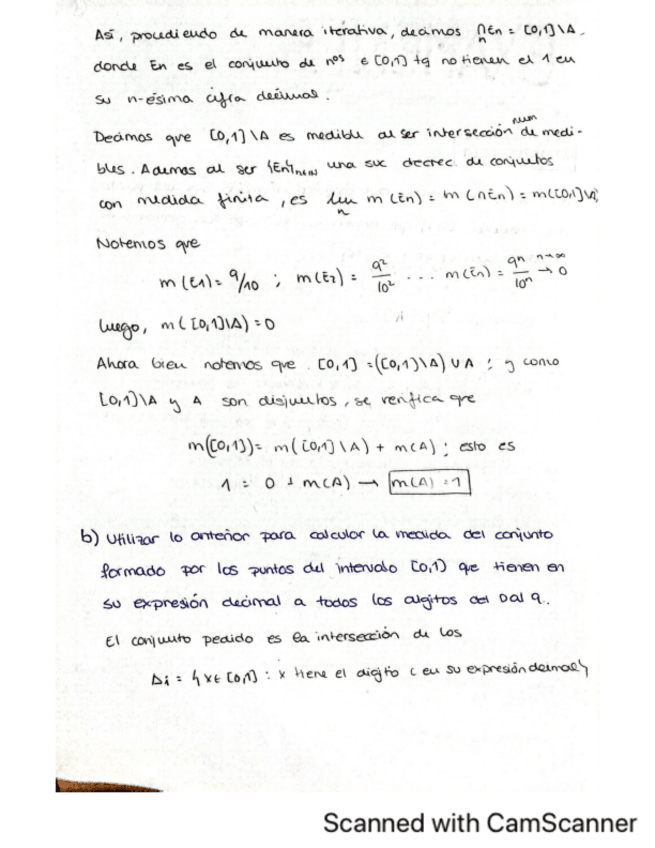 Así, procediendo de manera iterativa, decimos ∩ En = [0,1]\A.
n
donde En es el conjunto de nos ∈ [0,1] tq no tienen el 1 en
su n-ésima cifra decimal.
Decimos que [0,1]\A es medible al ser intersección num de medi-
bles. Ademas al ser {En}n∈ℕ una suc decrec. de conjuntos
con medida finita, es lim m(En) = m(∩En) = m([0,1]\A)
n
Notemos que
m(E1) = 9/10 ; m(E2) = 9²/10² ... m(En) = 9ⁿ/10ⁿ n→∞ → 0
luego, m([0,1]\A) = 0
Ahora bien notemos que [0,1] = ([0,1]\A) ∪ A ; y como
[0,1]\A y A son disjuntos, se verifica que
m([0,1]) = m([0,1]\A) + m(A) ; esto es
1 = 0 + m(A) → m(A) = 1
b) Utilizar lo anterior para calcular la medida del conjunto
formado por los puntos del intervalo [0,1) que tienen en
su expresión decimal a todos los dígitos del 0 al 9.
El conjunto pedido es la intersección de los
Δi = {x ∈ [0,1] : x tiene el dígito i en su expresión decimal}
Scanned with CamScanner